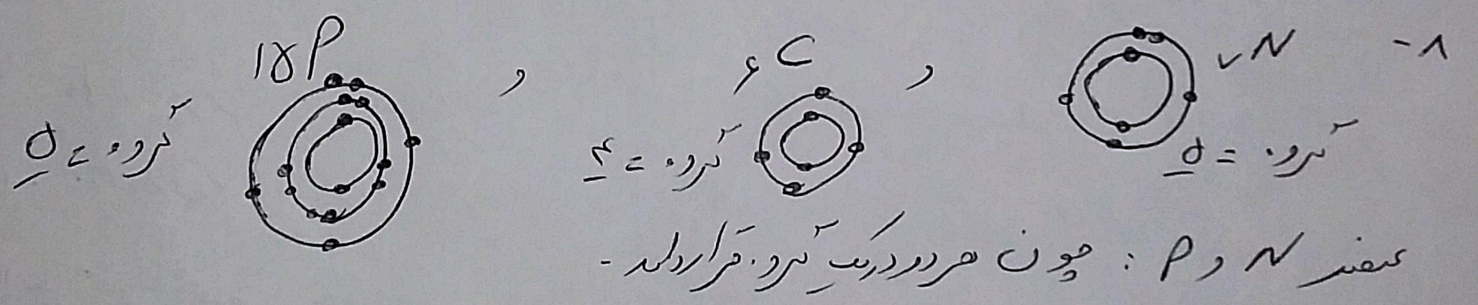 ۸- ۷N , ۶C , ۱۵P
گروه = ۵ گروه = ۴ گروه = ۵
عنصر N و P : چون هر دو در یک گروه قرار دارند.